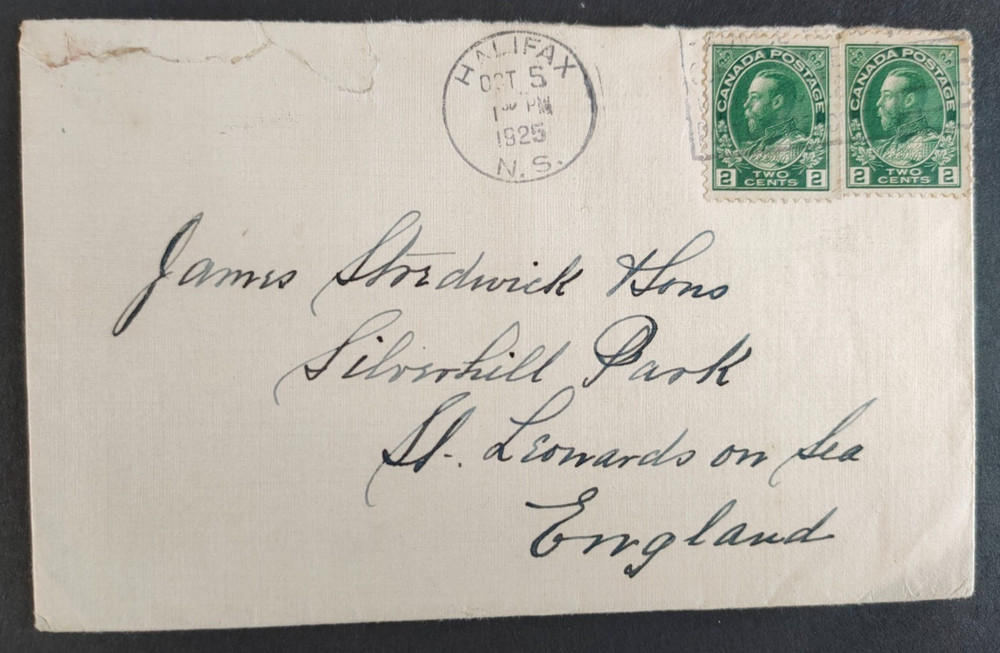 HALIFAX
OCT 5
1 30 PM
1925
N.S.
CANADA POSTAGE
2 TWO CENTS 2
CANADA POSTAGE
2 TWO CENTS 2
James Stredwick & Sons
Silverhill Park
St. Leonards on Sea
England